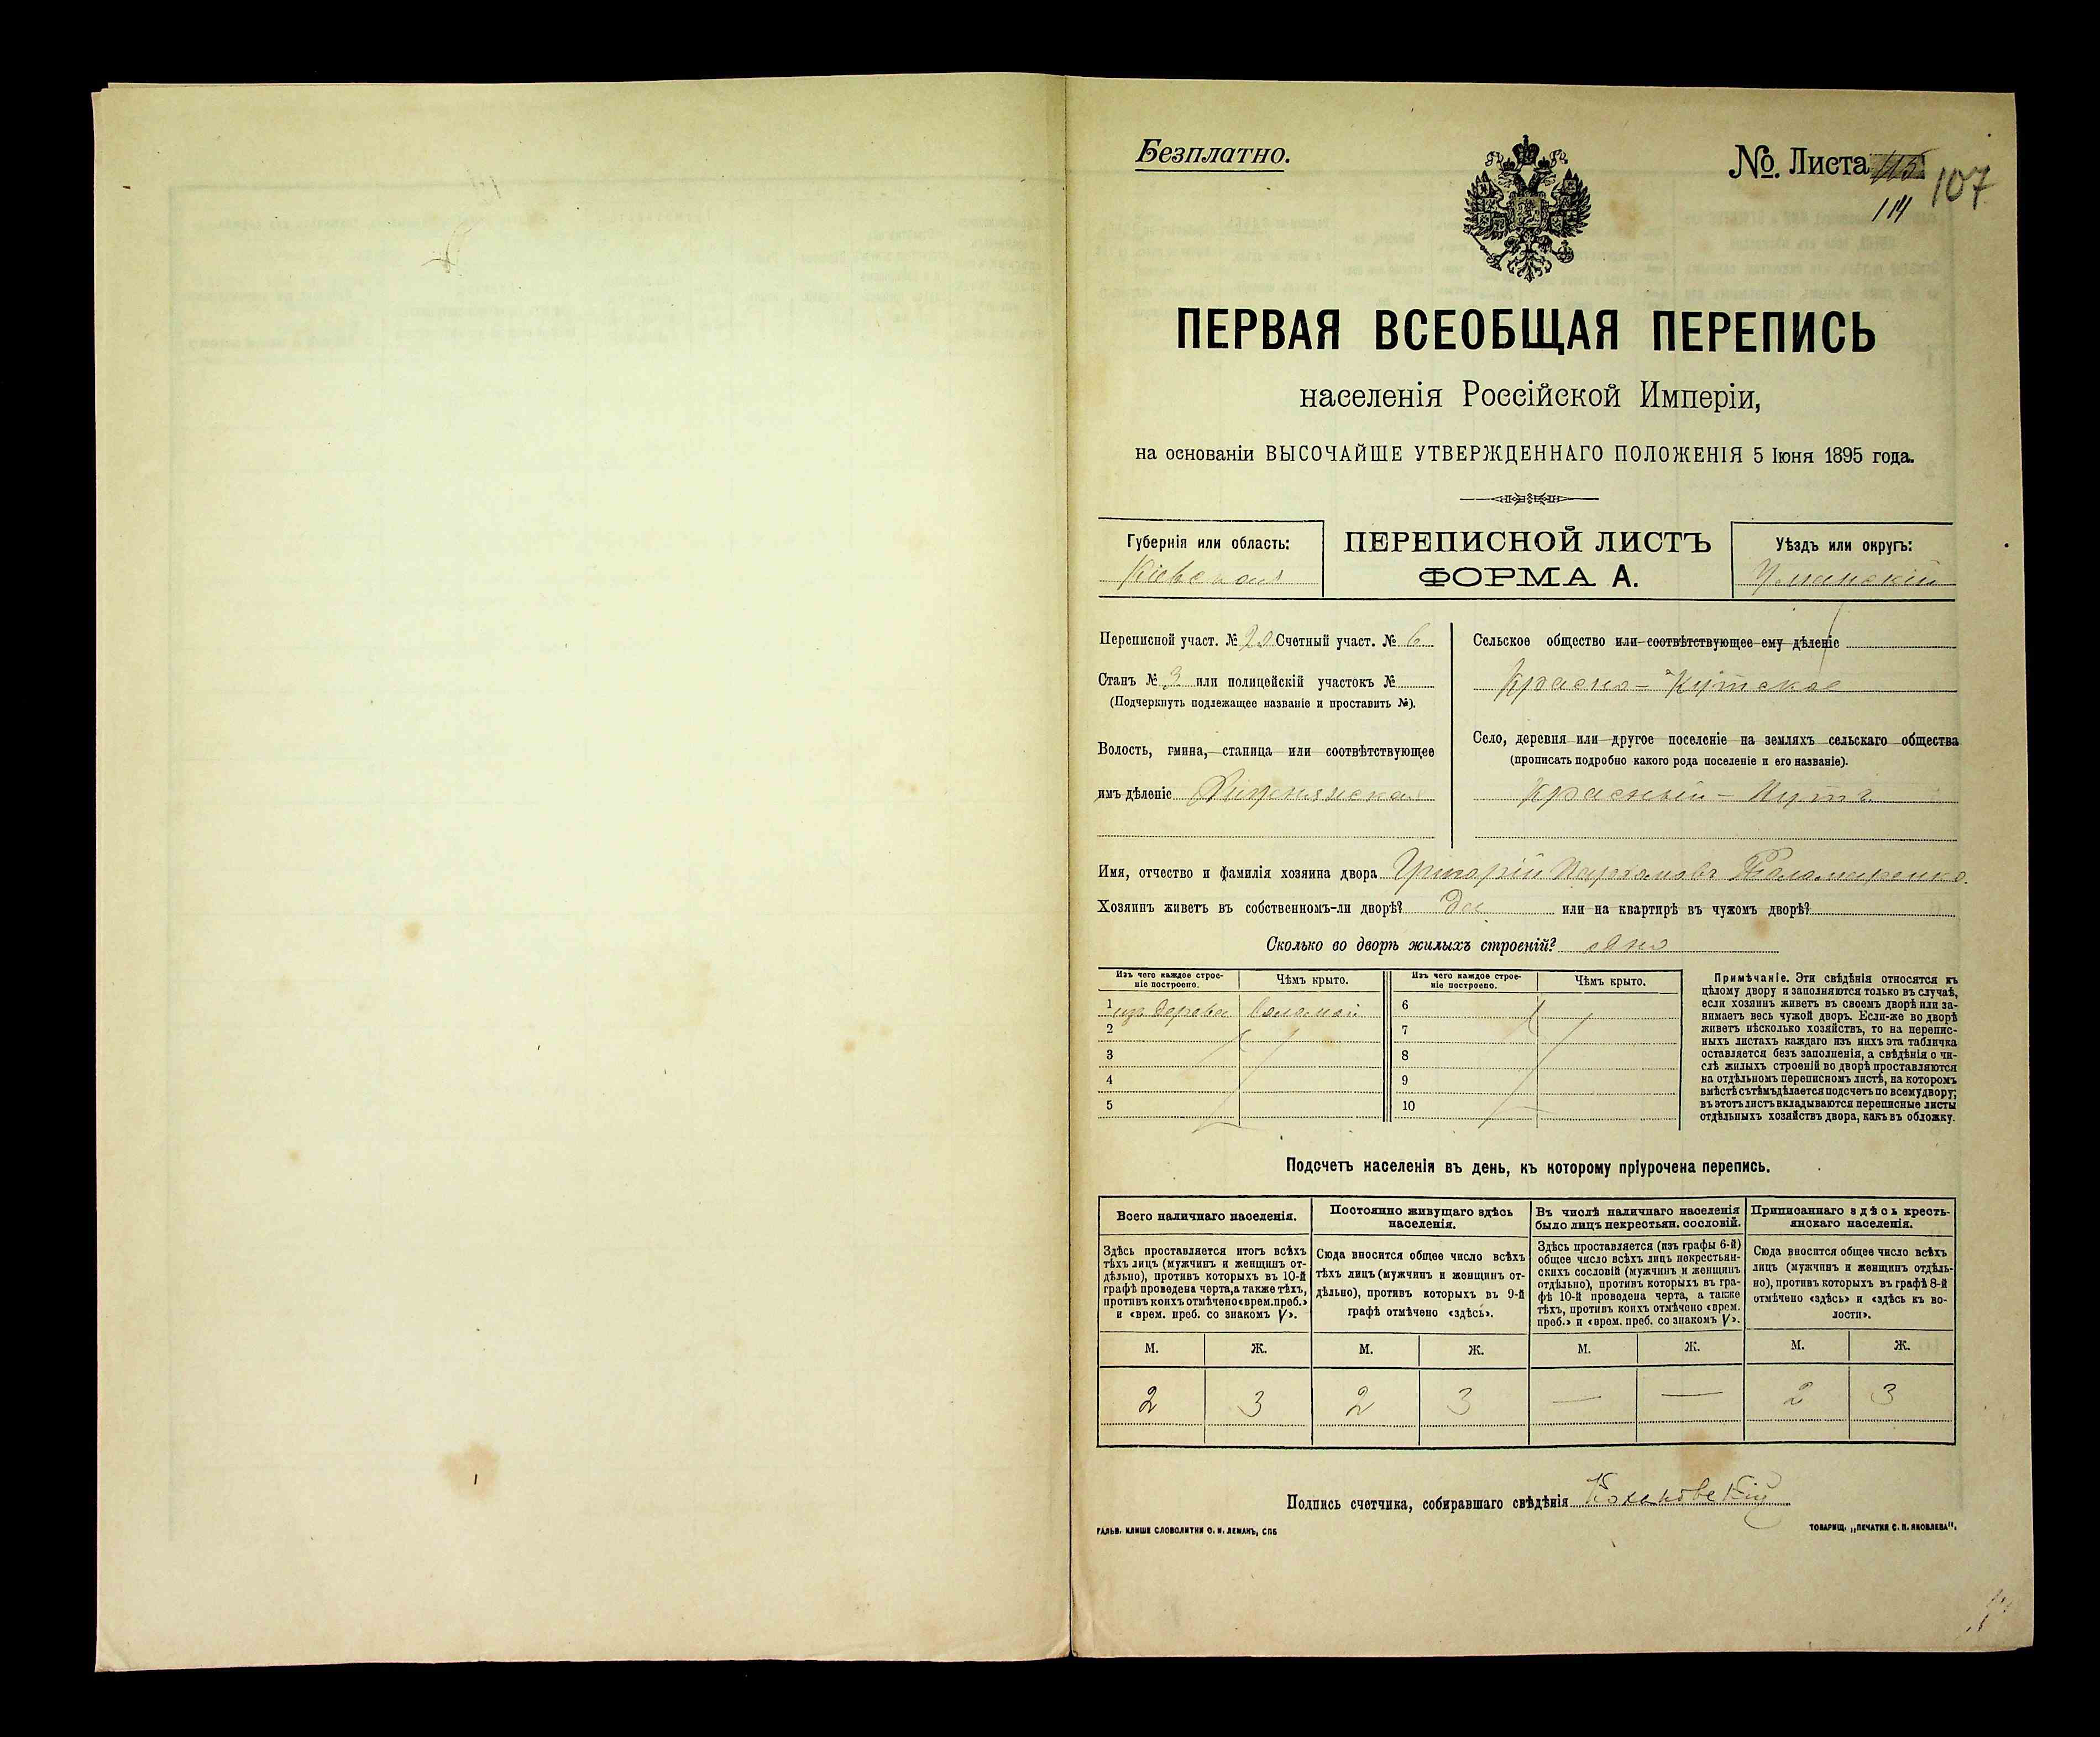 Безплатно.
№. Листа 115
114
107
ПЕРВАЯ ВСЕОБЩАЯ ПЕРЕПИСЬ
населенія Россійской Имперіи,
на основаніи ВЫСОЧАЙШЕ УТВЕРЖДЕННАГО ПОЛОЖЕНІЯ 5 Іюня 1895 года.
Губернія или область:
Кіевская
ПЕРЕПИСНОЙ ЛИСТЪ
ФОРМА А.
Уѣздъ или округъ:
Уманскій
Переписной участ. № Счетный участ. № 6
Станъ № 3 или полицейскій участокъ №
(Подчеркнуть подлежащее названіе и проставить №).
Волость, гмина, станица или соотвѣтствующее
имъ дѣленіе
Сельское общество или соотвѣтствующее ему дѣленіе
Красно-Кутское
Село, деревня или другое поселеніе на земляхъ сельскаго общества
(прописать подробно какого рода поселеніе и его названіе).
Красный-Кутъ
Имя, отчество и фамилія хозяина двора Григорій
Хозяинъ живетъ въ собственномъ-ли дворѣ? да или на квартирѣ въ чужомъ дворѣ?
Сколько во дворѣ жилыхъ строеній? одно
Изъ чего каждое строе-
ніе построено.
Чѣмъ крыто.
1 изъ дерева Соломой
2
3
4
5
Изъ чего каждое строе-
ніе построено.
Чѣмъ крыто.
6
7
8
9
10
Примѣчаніе. Эти свѣдѣнія относятся къ
цѣлому двору и заполняются только въ случаѣ,
если хозяинъ живетъ въ своемъ дворѣ или за-
нимаетъ весь чужой дворъ. Если-же во дворѣ
живетъ нѣсколько хозяйствъ, то на перепис-
ныхъ листахъ каждаго изъ нихъ эта табличка
оставляется безъ заполненія, а свѣдѣнія о чи-
слѣ жилыхъ строеній во дворѣ проставляются
на отдѣльномъ переписномъ листѣ, на которомъ
вмѣстѣ съ тѣмъ дѣлается подсчетъ по всему двору;
въ этотъ листъ вкладываются переписные листы
отдѣльныхъ хозяйствъ двора, какъ въ обложку.
Подсчетъ населенія въ день, къ которому пріурочена перепись.
Всего наличнаго населенія.
Здѣсь проставляется итогъ всѣхъ
тѣхъ лицъ (мужчинъ и женщинъ от-
дѣльно), противъ которыхъ въ 10-й
графѣ проведена черта, а также тѣхъ,
противъ коихъ отмѣчено «врем. преб.»
и «врем. преб. со знакомъ V».
Постоянно живущаго здѣсь
населенія.
Сюда вносится общее число всѣхъ
тѣхъ лицъ (мужчинъ и женщинъ от-
дѣльно), противъ которыхъ въ 9-й
графѣ отмѣчено «здѣсь».
Въ числѣ наличнаго населенія
было лицъ некрестьян. сословій.
Здѣсь проставляется (изъ графы 6-й)
общее число всѣхъ лицъ некрестьян-
скихъ сословій (мужчинъ и женщинъ
отдѣльно), противъ которыхъ въ гра-
фѣ 10-й проведена черта, а также
тѣхъ, противъ коихъ отмѣчено «врем.
преб.» и «врем. преб. со знакомъ V».
Приписаннаго здѣсь кресть-
янскаго населенія.
Сюда вносится общее число всѣхъ
лицъ (мужчинъ и женщинъ отдѣль-
но), противъ которыхъ въ графѣ 8-й
отмѣчено «здѣсь» и «здѣсь къ во-
лости».
М. Ж. М. Ж. М. Ж. М. Ж.
2 3 2 3 — — 2 3
Подпись счетчика, собиравшаго свѣдѣнія
ГАЛЬВ. КЛИШЕ СЛОВОЛИТНИ О. И. ЛЕМАНЪ, СПБ
ТОВАРИЩ. „ПЕЧАТНЯ С. П. ЯКОВЛЕВА".